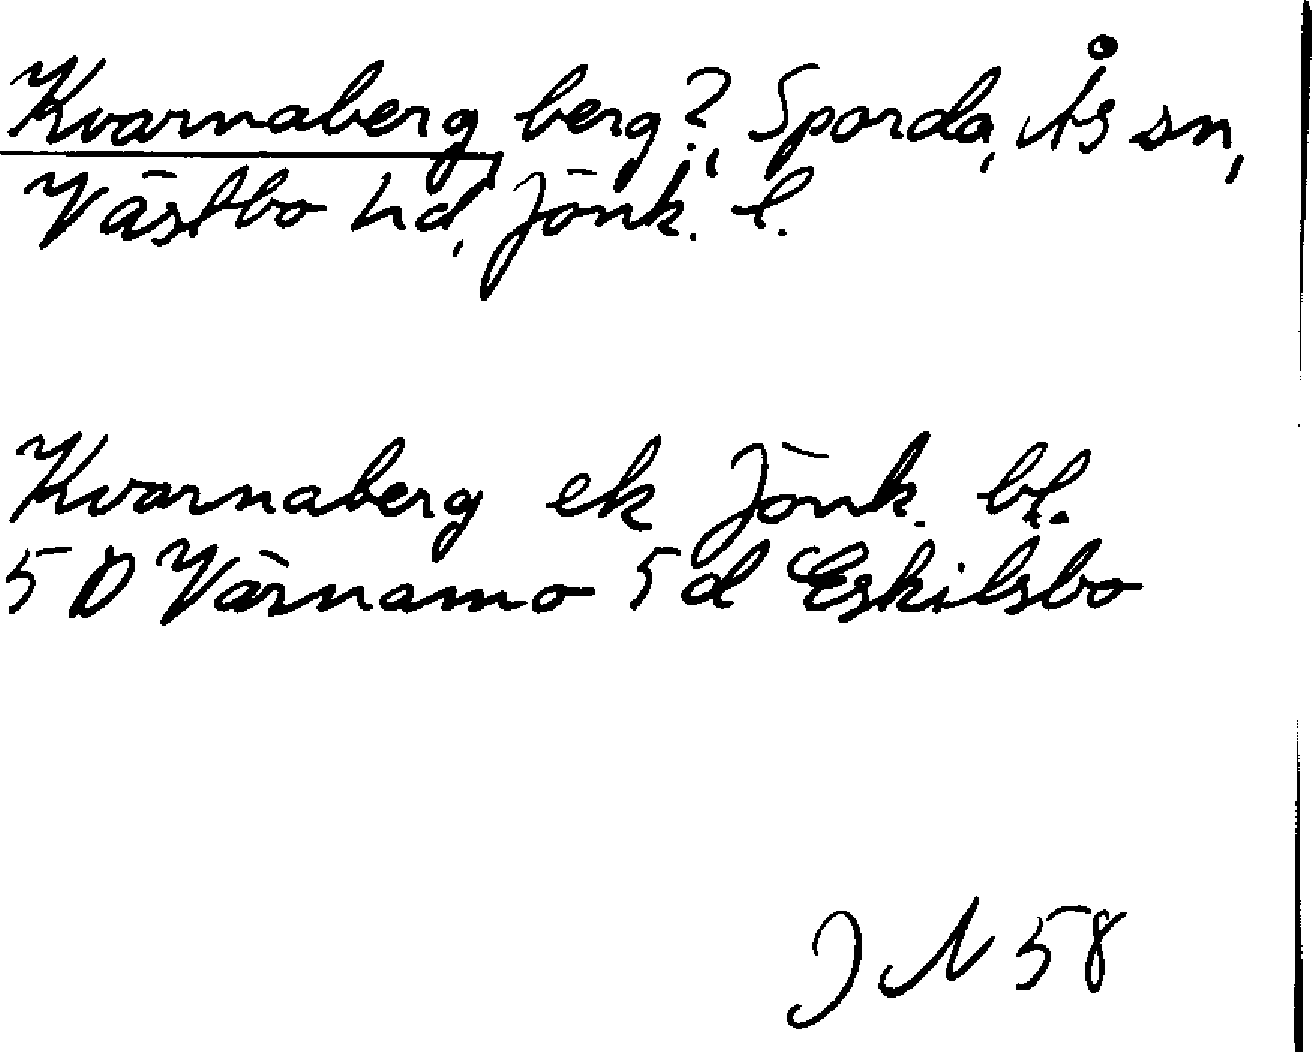 Kvarnaberg, berg?, Sporda, Ås sn,
Västbo hd, Jönk. l.
Kvarnaberg ek Jönk. bl.
5 D Värnamo 5 d Eskilsbo
J N 58